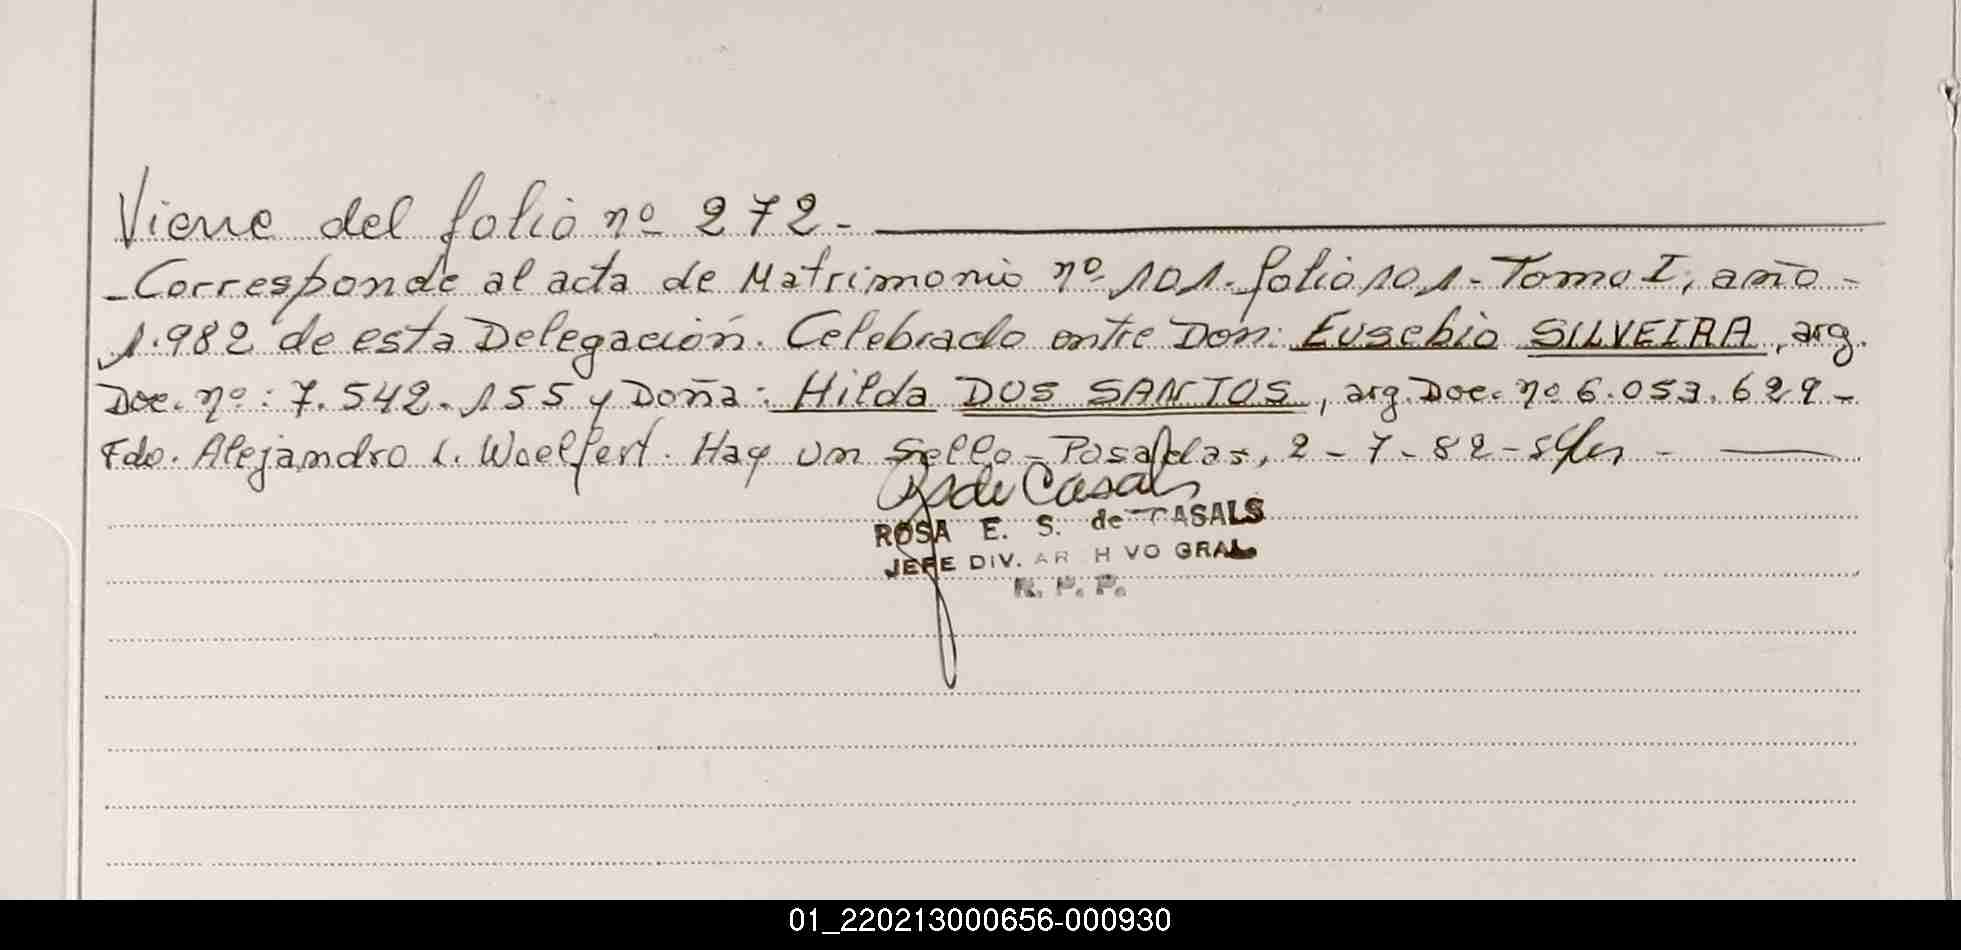 Viene del folio nº 272.-
-Corresponde al acta de Matrimonio nº 101. folio 101- Tomo I, año -
1.982 de esta Delegación. Celebrado entre Don: Eusebio SILVEIRA, arg.
Doc. nº: 7.542.155 y Doña: Hilda DOS SANTOS, arg. Doc. nº 6.053.629-
Fdo. Alejandro L. Woelfert. Hay un Sello- Posadas, 2-7-82-
ROSA E. S. de CASALS
JEFE DIV. AR H VO GRAL
R. P. P.
01_220213000656-000930